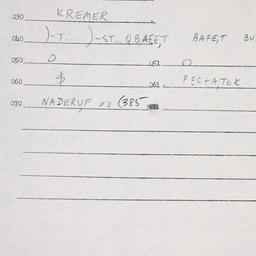 030 KREMER
040 )-T... )-ST... QBAFE,T BAFE,T BU
050 O 051 O
060 $ 061 PECLATOK
070 NADERUF xx (385